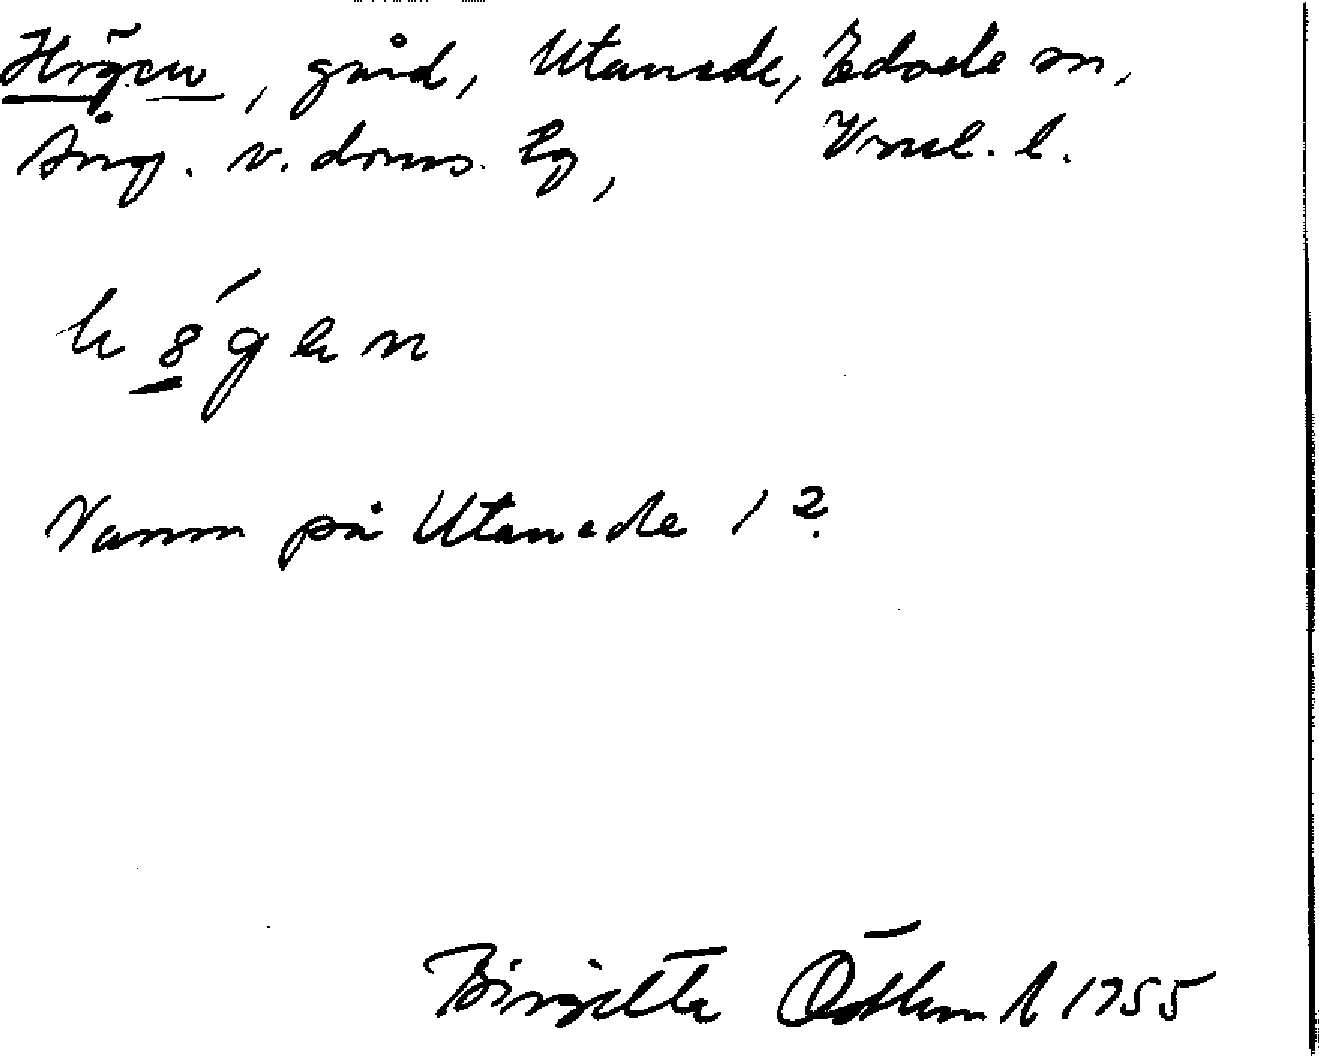 Högen, gård, Utanede, Edsele sn,
Ång. v. doms. lg, Vnl. l.
h 8 g e n
Namn på Utanede 1?
Birgitta Östlund 1955